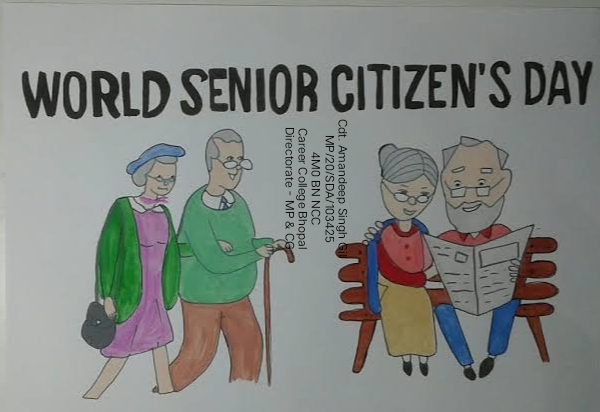 WORLD SENIOR CITIZEN'S DAY
Cdt. Amandeep Singh Gil
MP/20/SDA/103425
4M0 BN NCC
Career College Bhopal
Directorate - MP & CG